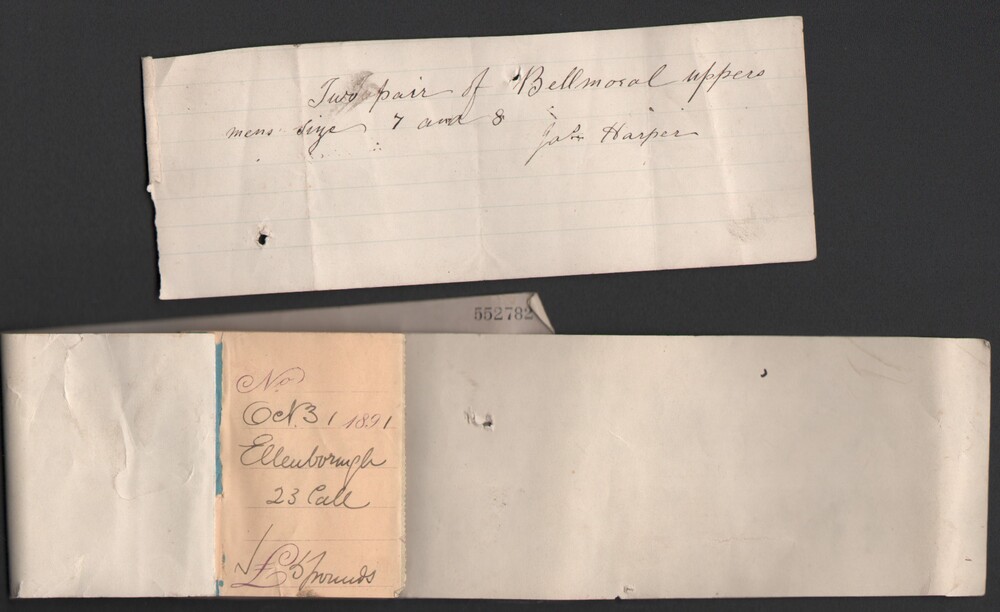 Two pair of Bellmoral uppers
mens size 7 and 8 John Harper
552782
No
Oct 31 1891
Ellenborough
23 Call
£ 5 pounds